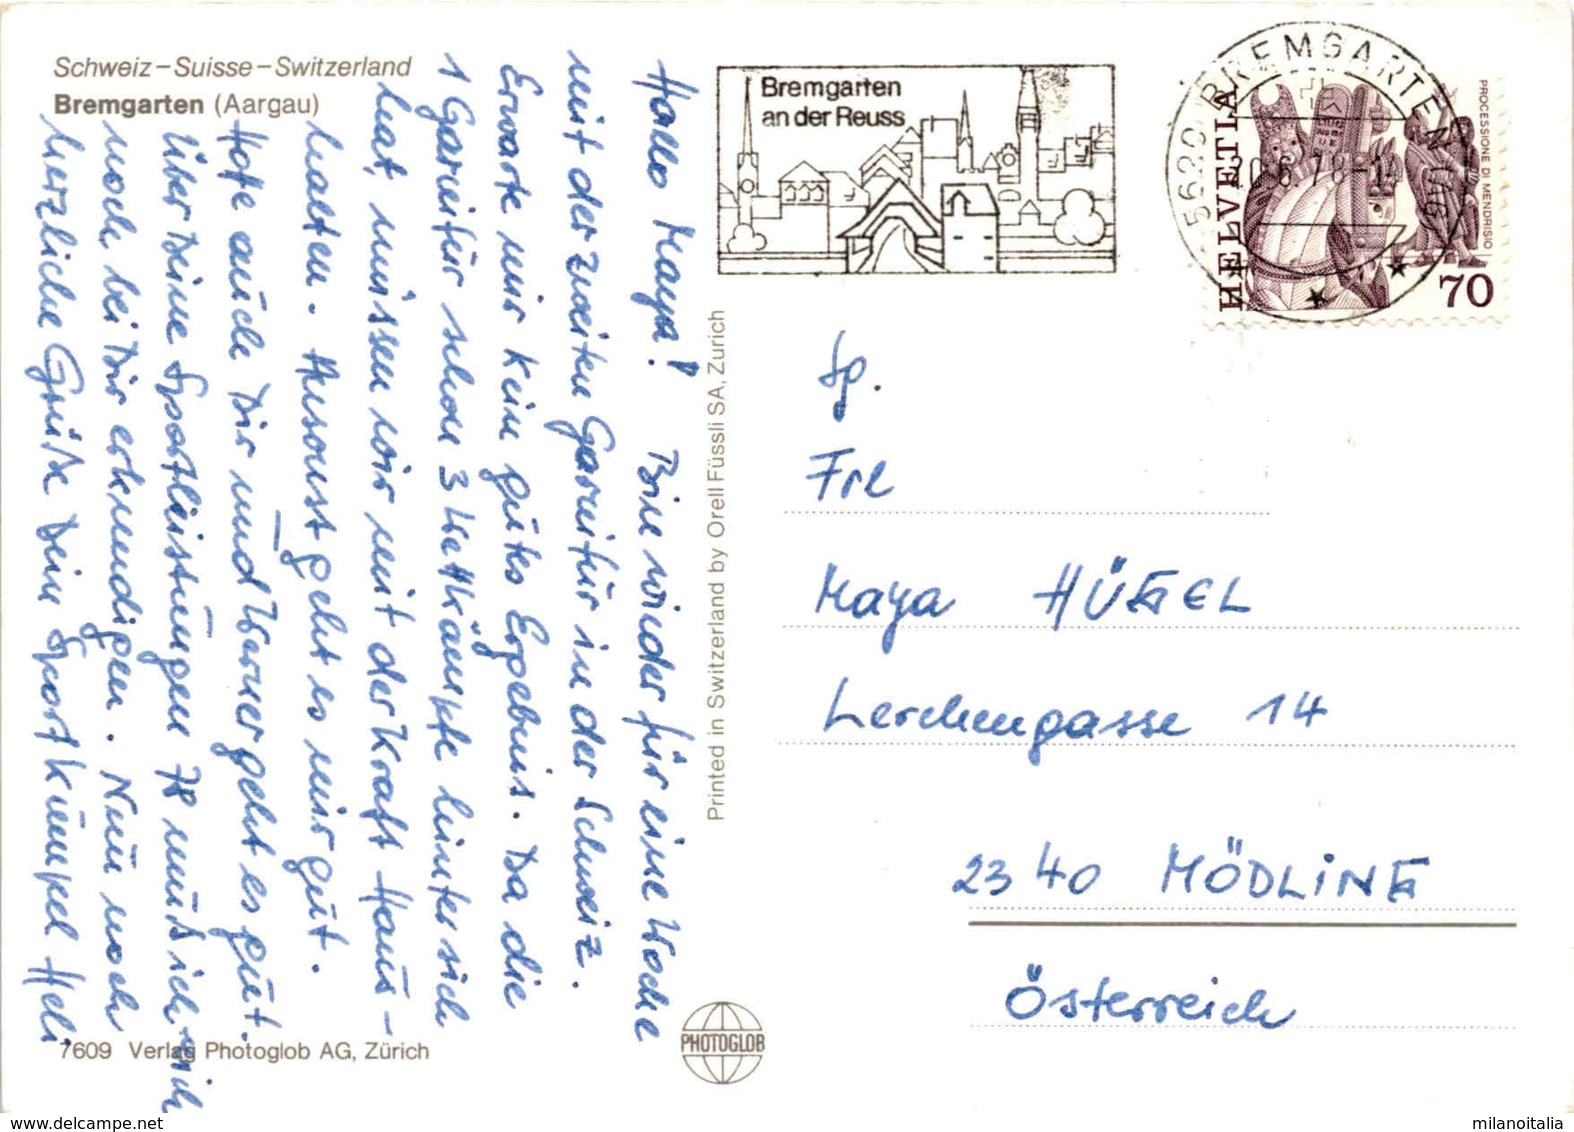 Schweiz – Suisse – Switzerland
Bremgarten (Aargau)
Hallo Maya! Bin wieder für eine Woche
mit der zweiten Garnitur in der Schweiz.
Erwarte mir kein gutes Ergebnis. Da die
1 Garnitur schon 3 Wettkämpfe hinter sich
hat, müssen wir mit der Kraft Haus-
halten. Ansonst geht es mir gut.
Hoffe auch Dir und Werner geht es gut.
Über Deine Sportleistungen 78 muß ich mich
noch bei Dir erkundigen. Nun noch
herzliche Grüße Dein Sportkumpel Heli
7609 Verlag Photoglob AG, Zürich
Printed in Switzerland by Orell Füssli SA, Zurich
PHOTOGLOB
Bremgarten
an der Reuss
5620 BREMGARTEN AG
20.6.78-14
HELVETIA
PROCESSIONE DI MENDRISIO
70
Sp.
Frl
Maya HÜGEL
Lerchengasse 14
2340 MÖDLING
Österreich
www.delcampe.net
milanoitalia